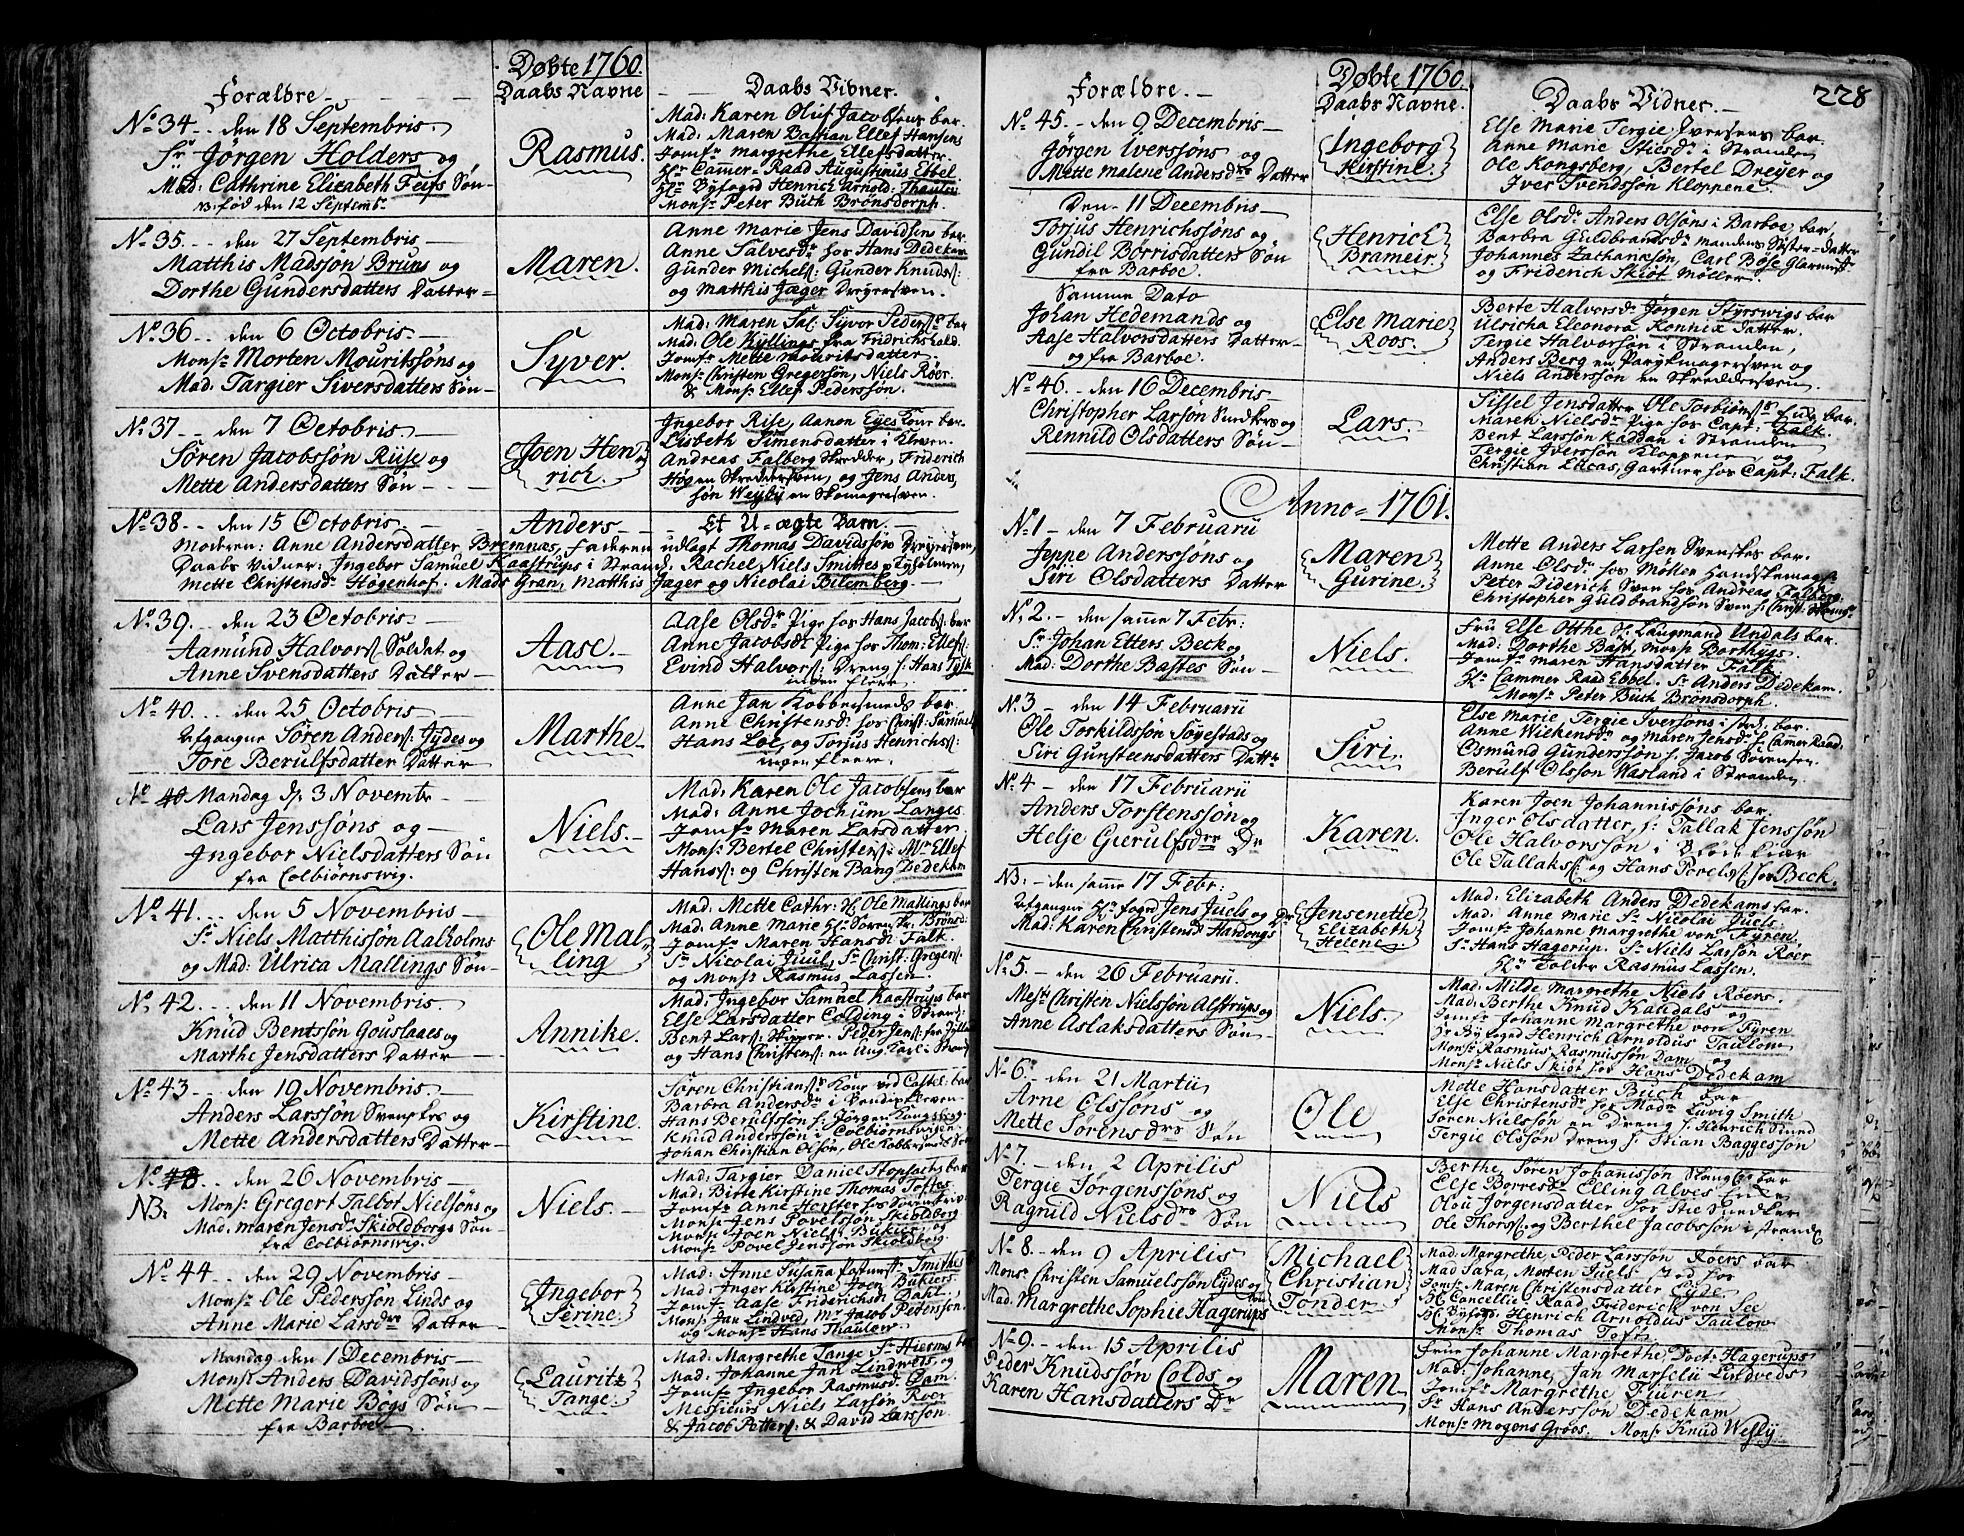 Døbte 1760.
Forældre. Daabs Navne Daabs Vidner.
No. 34. den 18 Septembris.
Sr. Jørgen Holders og
Mad: Cathrine Elizabeth Feifs Søn
NB: fød den 12 Septembr.
Rasmus.
Mad: Karen Oluf Jacobsens bar.
Mad: Maren Bastian Ellef Hansens
Jomfr. Margrethe Ellefsdatter.
Hr. Cammer-Raad Augustinus Ebbel
Hr. Byfogd Henrich Arnold: Thaulou
Mons: Peter Buch Brønsdorph.
No. 35. den 27 Septembris
Matthis Madssøn Bruns og
Dorthe Gundersdatters Datter
Maren.
Anne Marie Jens Davidsens bar
Anne Salvesdr. hos Hans Dedekam
Gunder Michels: Gunder Knuds:
og Matthis Jæger Dreyersven.
No. 36 den 6 Octobris.
Monsr. Morten Mouritssøns og
Mad: Targier Siversdatters Søn
Syver.
Mad: Maren Sal: Syvor Peders: bar
Mad: Ole Kyllings fra Fridrichshald.
Jomfr. Mette Mouritsdatter.
Monsr. Christen Gregersøn, Niels Röer.
& Mons: Ellef Pederssøn.
No. 37 den 7 Octobris.
Søren Jacobssøn Riise og
Mette Andersdatters Søn
Joen Hen
rich.
Ingebor Rise, Aanon Eyes Kone bar.
Lisbeth Simensdatter i Kleven.
Andreas Falberg Skredder, Friderich
Høg en Skreddersven, og Jens Anders,
søn Weyby en Skomagersven.
No. 38. den 15 Octobris. Anders Et U-ægte Barn.
Moderen: Anne Andersdatter Bremnæs, Faderen udlagt Thomas Davidssøn Dreyersven,
Daabs Vidner: Ingebor Samuel Kaastrups i Strand: Rachel Niels Smittes p. Tyholmen,
Mette Christensd: Høgenhof. Mads Gran, Matthis Jæger og Nicolai Bilemberg.
No. 39. den 23 Octobris
Aamund Halvors: Soldat og
Anne Svensdatters Datter
Aase.
Aase Olsdr. Pige hos Hans Jacobs: bar
Anne Jacobsdr Pige hos Thom: Ellefs:
Evind Halvors: Dreng h: Hans Tysk
ingen fleere.
No. 40. den 25 Octobris
Afgangne Søren Anders: Jydes og
Tore Berulfsdatter Datter
Marthe
Anne Jan Kobbersmeds bar
Anne Christensd. hos Christ: Samuels:
Hans Loe, og Torjus Henrichs:
ingen fleere.
No. 40 Mandag d. 3 Novembr.
Lars Jenssøns og
Ingebor Nielsdatters Søn
fra Colbiørnswig.
Niels.
Mad: Karen Ole Jacobsens bar
Mad: Anne Jochum Langes
Jomfr. Maren Larsdatter
Monsr. Bertel Christens: Mr. Ellef
Hans: og Christen Bang Dedekam
No. 41. den 5 Novembris
Sr. Niels Matthissøn Aalholms
og Mad: Ulrica Mallings Søn
Ole Mal
ling
Mad: Mette Cathr: Hr. Ole Mallings bar
Mad: Anne Marie Hr. Søren Fr. Brønsd:
Jomfr. Maren Hansdr Falk
Sr. Nicolai Juul, Sr. Christ: Gregers:
og Monsr. Rasmus Lassen
No. 42. den 11 Novembris.
Knud Bentssøn Gouslaaes og
Marthe Jensdatters Datter
Annike.
Mad: Ingebor Samuel Kaastrups bar
Else Larsdatter Colding i Strand:
og Hans Christens: en Ung Karl
No. 43 den 19 Novembris.
Anders Larssøn Svenskes og
Mette Andersdatters Datter
Kirstine.
Søren Christians: Kone ved Castel: bar
Barbra Andersdr. i Bendixkleven
Hans Berulfssøn h: Jørgen Kongsberg.
Knud Anderssøn i Colbiørnswigen
Johan Christian Olsøn, Ole Kobbersmeds Søn
No. 48. den 26 Novembris
NB: Monsr: Gregert Talbot Nielssøns og
Mad: Maren Jensd: Skioldborgs Søn
fra Colbiørnswig.
Niels.
Mad: Targier Daniel Stopsachs bar
Mad: Birte Kirstine Thomas Toftes
Jomfr. Anne Horster hos Dorenfriv:
Monsr Jens Povelssøn Skioldborg
Monsr Joen Niels: Bukier, og
Monsr. Povel Jenssøn Skioldberg.
No. 44 den 29 Novembris
Monsr. Ole Pederssøn Linds og
Anne Marie Larsdrs Datter
Ingebor
Serine.
Mad: Anne Susaña Smithes
Mad: Inger Kirstine Joen Bukiers
Jomfr. Aase Friderichsdr Dahl.
Monsr. Jan Lindved, Mr. Jacob Petersson.
og Monsr. Hans Thaulow
Mandag den 1 Decembris
Monsr. Anders Davidssøns og
Mette Marie Bøgs Søn
fra Barboe
Lauritz
Tange.
Mad: Margrethe Tange Sr. Hierms bar
Mad: Johanne Jan Lindveds og
Jomfr. Ingebor Rasmusd: Dam.
Messieurs Niels Larsøn Röer
& Jacob Petters: & David Larssøn.
228
Døbte 1760.
Forældre. Daabs Navne. Daabs Vidner.
No. 45. den 9 Decembris
Jørgen Iverssøns og
Mette Malene Andersdrs Datter
Ingeborg
Kirstine.
Else Marie Tergie Iversens bar.
Anne Marie Stiesdr. i Stranden
Ole Kongsberg, Bertel Dreyer og
Iver Svendssøn Kloppene.
Den 11 Decembris
Torjus Henrichssøns og
Gundil Børrisdatters Søn
fra Barboe.
Henrich
Brameir.
Else Olsdr. Anders Olssøns i Barboe, bar,
Barbra Guldbrandsdr. Mandens Søster-Datter
Johannes Zachariassøn, Carl Böse Glarm:
og Friderich Skiöt Møller.
Samme Dato
Johan Hedemands og
Aase Halvorsdatters Datter
og fra Barboe.
Else Marie
Roos.
Berte Halvorsdr. Jørgen Styrswigs bar
Ulricha Eleonora Konnix datter.
Tergie Halvorssøn i Stranden,
Anders Berg en Parykmagersven og
Niels Anderssøn en Skreddersven.
No. 46. den 16 Decembris
Christopher Larsøn Snedkers og
Rennild Olsdatters Søn
Lars.
Sissel Jensdatter Ole Torbiøns: Ende bar.
Maren Nielsdr. Pige hos Capt: Falk.
Bent Larssøn Kaddan i Stranden
Tergie Iverssøn Kloppene og
Christian Lucas, Gartner hos Capt: Falk.
Anno 1761.
No. 1 den 7 Februarii
Jeppe Anderssøns og
Siri Olsdatters Datter
Maren
Gurine.
Mette Anders Larsen Svenskes bar.
Anne Olsdr. hos Møller Handskemager
Peter Diderich Sven hos Andreas Falberg.
Christopher Guldbrandsøn Sven h: Christ:
No. 2. den samme 7 Febr:
Sr. Johan Etters Beck og
Mad: Dorthe Basses Søn
Niels.
Fru Else Otthe Hr. Laugmand Undals bar.
Mad: Dorthe Bast, Monsr Borthigs.
Jomfr: Maren Hansdatter Falk
Hr. Cammer Raad Ebbel. Sr. Anders Dedekam.
Monsr. Peter Buch Brønsdorph.
No. 3 den 14 Februarii
Ole Torkildssøn Soyestads og
Siri Gunsteensdatters Dattr.
Siri.
Else Marie Tergie Iverssøns i strd: bar.
Anne Wiekensdr og Maren Jensdr. h: Camer Raad.
Osmund Gunderssøn h: Jacob Sørensen.
Berulf Olsson Wasland i Stranden.
No. 4 den 17 Februarii
Anders Torstenssøn og
Helje Gierulfsdrs Dr
Karen.
Karen Joen Johannissøns bar
Inger Olsdatter, h: Tallak Jenssøn
Ole Halvorssøn i Blødekiær
Ole Tallaks: og Hans Perels: hos Beck.
NB: den samme 17 Febr:
Afgangne Hr. fogd Jens Juels og
Mad: Karen Christensd: Hardongs Dr.
Jensenette
Elizabeth
Helene.
Mad: Elizabeth Anders Dedekams bar.
Mad: Anne Marie Sr. Nicolai Juels.
Jomfr Johanne Margrethe von Fyren
Sr. Hans Hagerup. Sr. Niels Larsøn Röer
Hr. Tolder Rasmus Lassen.
No. 5. den 26 Februarii.
Mesr. Christen Nielssøn Alstrups og
Anne Aslaksdatters Søn
Niels.
Mad: Milde Margrethe Niels Röers.
Mad: Berthe Knud Kalldals og
Jomfr Johanne Margrethe von Fyren
Hr Byfogd Henrich Arnoldus Taulow
Monsr. Rasmus Rasmussøn Dam og
Monsr. Niels Skiöt hos Hans Dedekam
No. 6. den 21 Martii
Arne Olssøns og
Mette Sørensdrs Søn
Ole
Mette Hansdatter Buch bar
Else Christensdr. hos Madm Luvig Smith
Søren Nielssøn en Dreng h: Henrich Smed
Tergie Olssøn Dreng h: Stian Baggessøn
No. 7. den 2 Aprilis
Tergie Jørgenssøns og
Ragnild Nielsdrs Søn
Niels
Berthe Søren Johanissøn Slang: bar
Else Borresd: Elling Alvis Enke
Olou Jørgensdatter hos Stie Snedker
Ole Thors: og Berthel Jacobssøn i strand:
No. 8. den 9 Aprilis
Monsr Christen Samuelssøn Eydes og
Mad: Margrethe Sophie Hagerups Søn
Michael
Christian
Tønder
Mad: Margrethe Peder Larssøn Röers bar
Mad Sara, Morten Juels
Jomfr: Maren Christensdatter Eyde.
Hr Cancellie Raad Friderich von See
Hr. Byfogd: Henrich Arnoldus Taulow
Monsr: Thomas Toft.
No. 9. den 15 Aprilis
Peder Knudssøn Colds og
Karen Hansdatters Dr
Maren
Frue Johanne Margrethe, Doct: Hagerups
Mad: Johanne, Jan Marselii Lindveds
Jomfr: Margrethe Fiuren
Sr. Hans Anderssøn Dedekam
Monsr. Mogens Groos. Monsr. Knud Wesly.